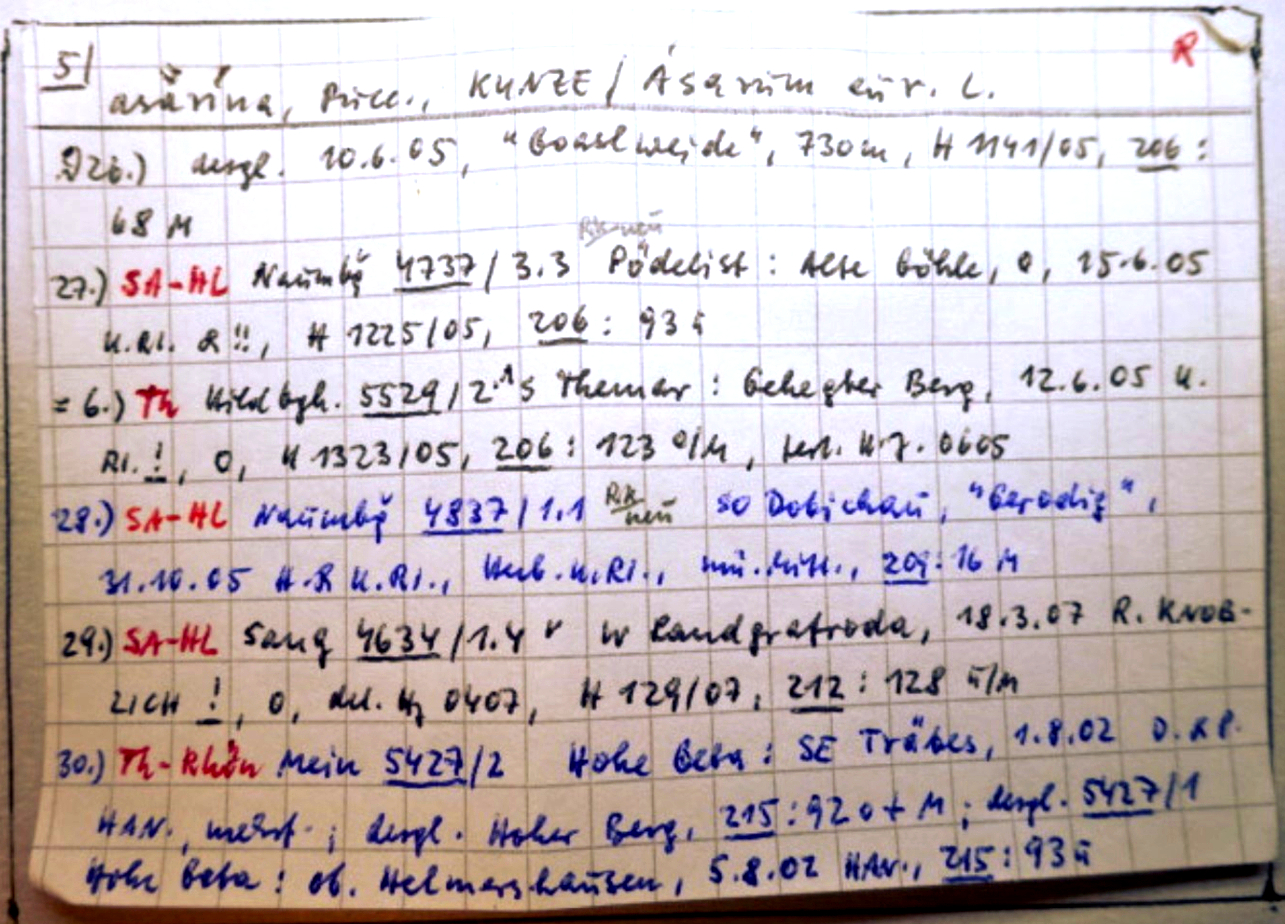 5/ R
asarina, Pucc., KUNZE / Asarum eur. L.
26.) desgl. 10.6.05, "Goaslweide", 730m, H 1141/05, 206:
68 M
RK-neu
27.) SA-HL Naumbg 4737/3.3 Pödelist: Alte Göhle, 0, 15.6.05
H.RI. R!!, H 1225/05, 206: 93 ū
= 6.) Th Hildbgh. 5529/2.1 S Themar: Gehegter Berg, 12.6.05 H.
RI. !, 0, H 1323/05, 206: 123 o/M, 0605
28.) SA-HL Naumbg 4837/1.1 RK neu SO Dobichau, "Gerodig",
31.10.05 H.R H.RI., Herb. H.RI., mü. Mitt., 209: 16 M
29.) SA-HL Sang 4634/1.4 W Landgrafroda, 18.3.07 R. KNOB-
LICH !, 0, del. 0407, H 129/07, 212: 128 ū/M
30.) Th-Rhön Mein 5427/2 Hohe Geba: SE Träbes, 1.8.02
HAN., mehrf.; desgl. Hoher Berg, 215: 92 o + M; desgl. 5427/1
Hohe Geba: ob. Helmershausen, 5.8.02 HAN., 215: 93 ū